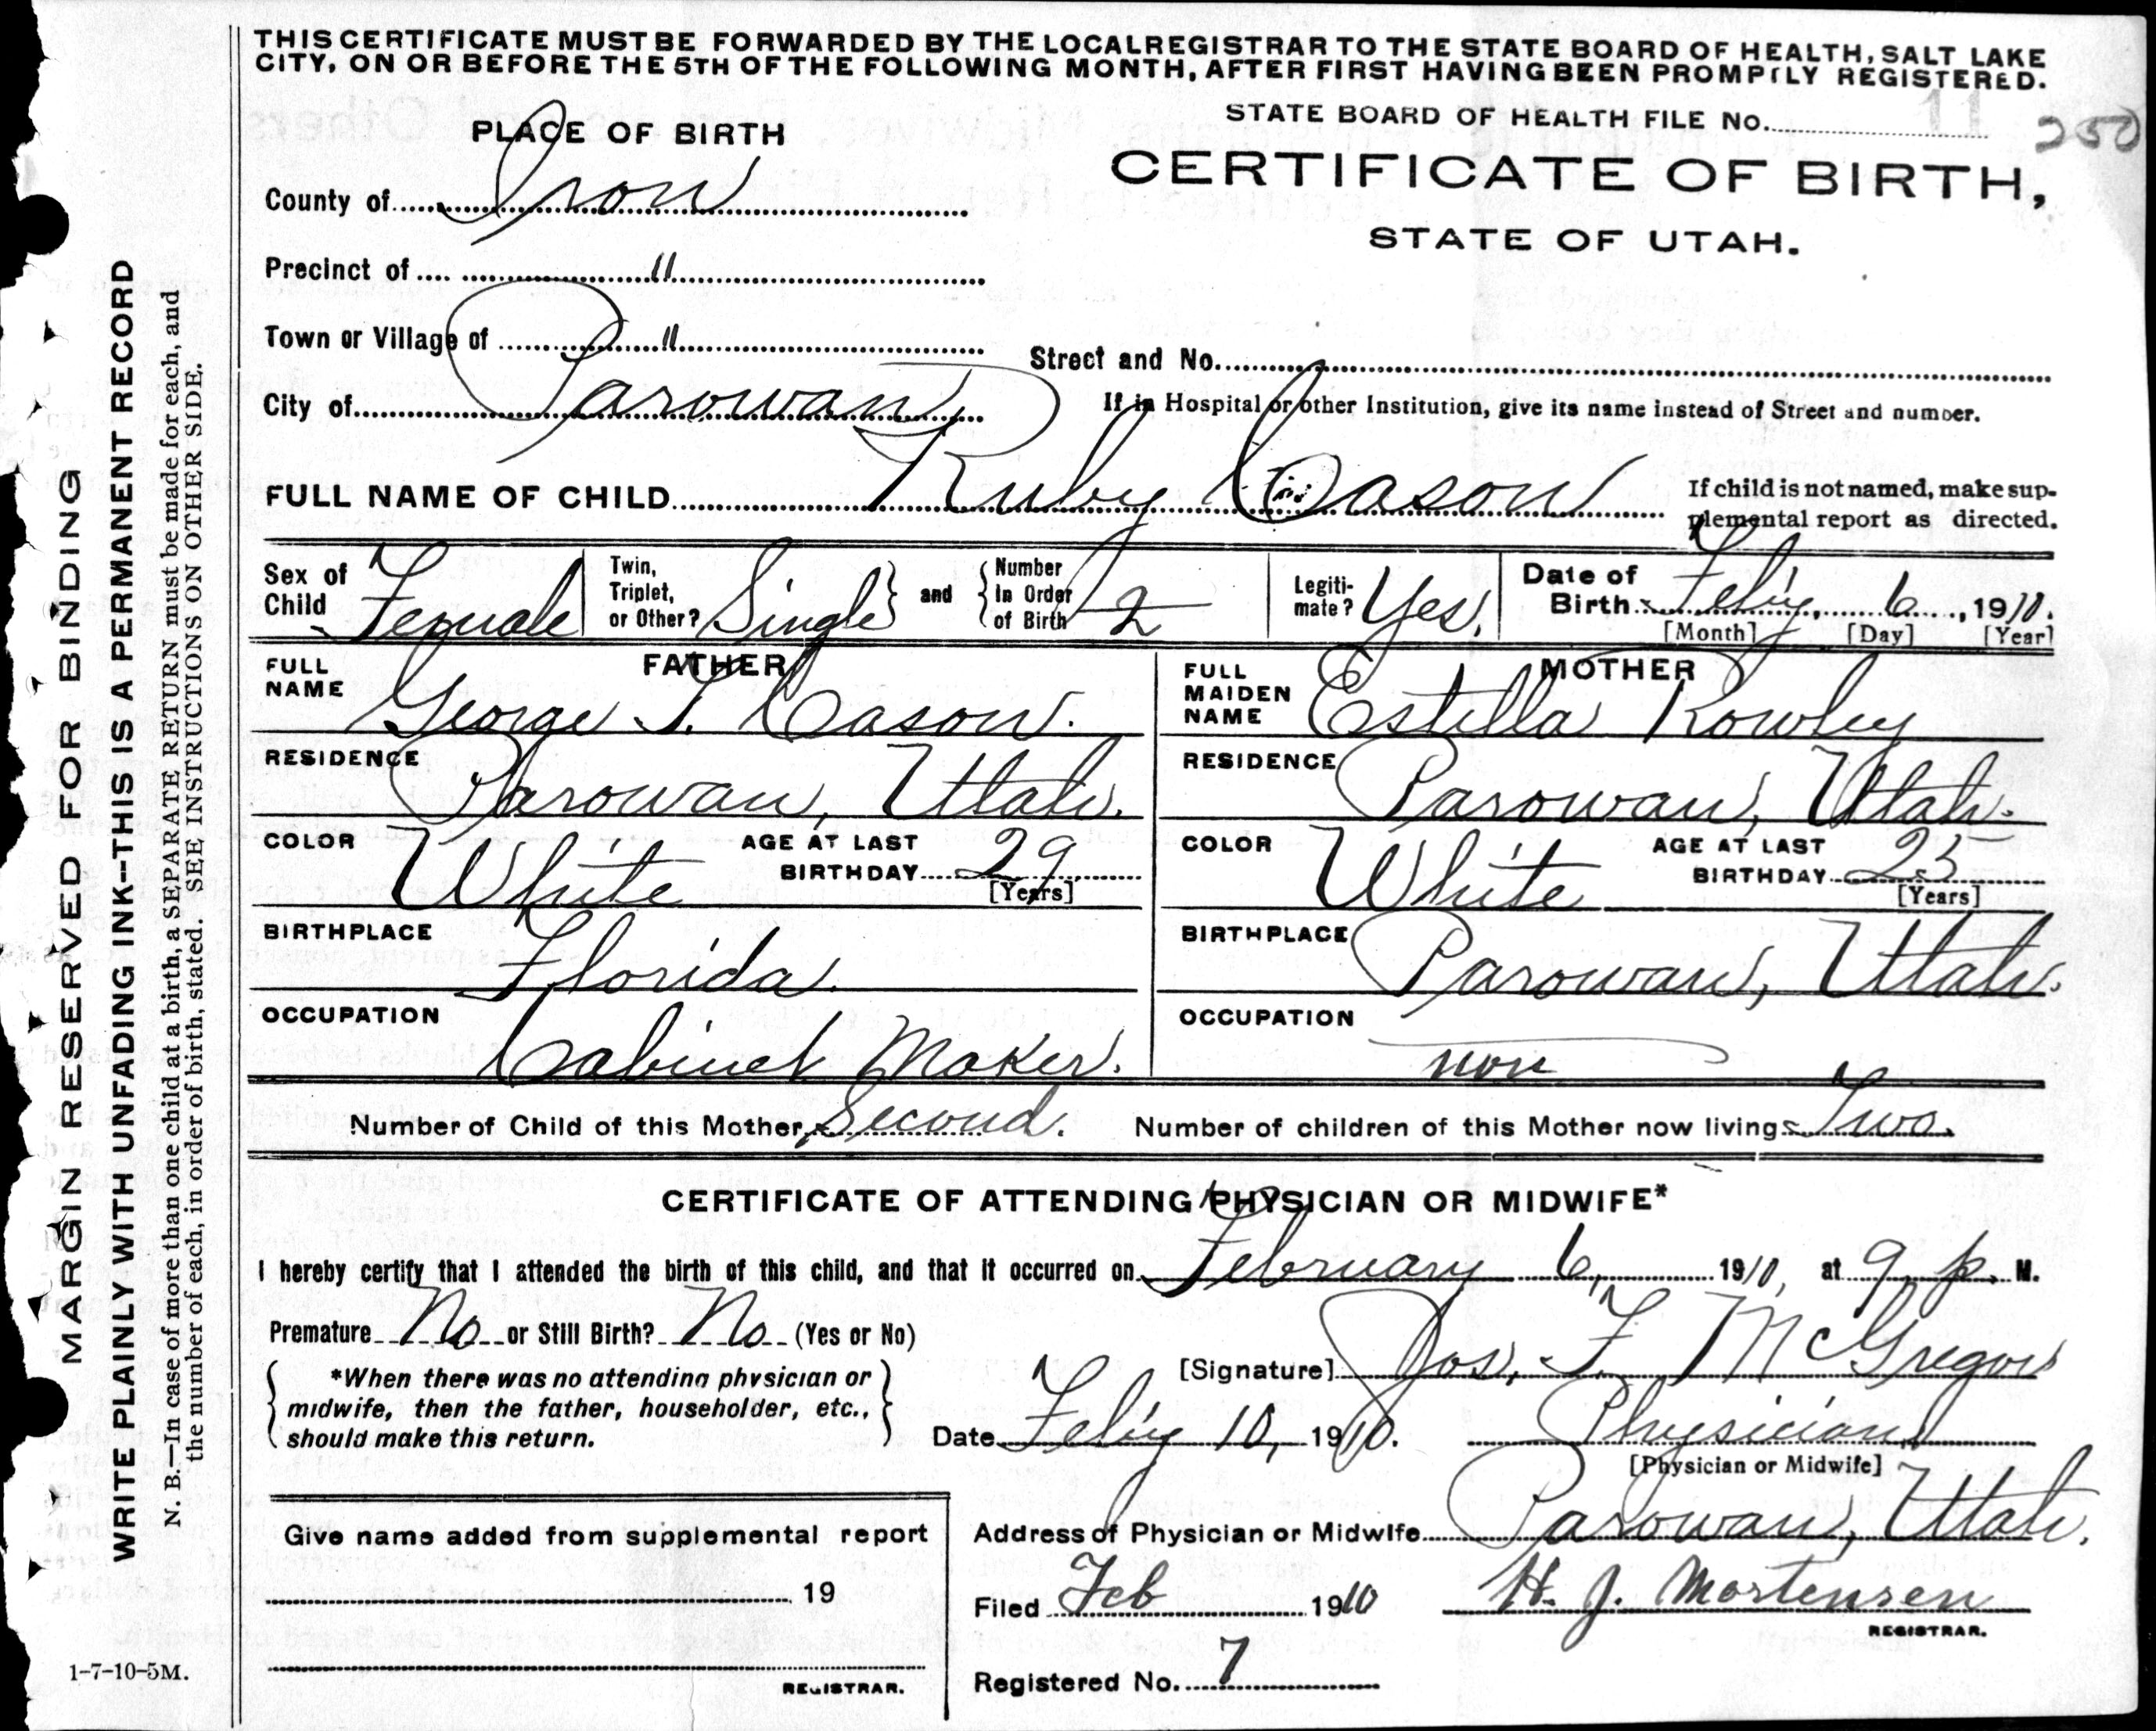 THIS CERTIFICATE MUST BE FORWARDED BY THE LOCAL REGISTRAR TO THE STATE BOARD OF HEALTH, SALT LAKE
CITY, ON OR BEFORE THE 5TH OF THE FOLLOWING MONTH, AFTER FIRST HAVING BEEN PROMPTLY REGISTERED.
STATE BOARD OF HEALTH FILE No. 11 250
PLACE OF BIRTH
CERTIFICATE OF BIRTH,
STATE OF UTAH.
County of Iron
Precinct of "
Town or Village of "
Street and No.
City of Parowan
If in Hospital or other Institution, give its name instead of Street and number.
FULL NAME OF CHILD Ruby Cason
If child is not named, make sup-
plemental report as directed.
Sex of Child Female
Twin, Triplet, or Other? Single
and
Number In Order of Birth 2
Legiti-mate? Yes.
Date of Birth Feb'y, 6, 1910.
[Month] [Day] [Year]
FATHER
FULL NAME George T. Cason.
MOTHER
FULL MAIDEN NAME Estella Rowley
RESIDENCE Parowan, Utah.
RESIDENCE Parowan, Utah.
COLOR White AGE AT LAST BIRTHDAY 29 [Years]
COLOR White AGE AT LAST BIRTHDAY 25 [Years]
BIRTHPLACE Florida.
BIRTHPLACE Parowan, Utah.
OCCUPATION Cabinet Maker.
OCCUPATION non
Number of Child of this Mother Second. Number of children of this Mother now living Two.
CERTIFICATE OF ATTENDING PHYSICIAN OR MIDWIFE*
I hereby certify that I attended the birth of this child, and that it occurred on February 6, 1910, at 9 p. M.
Premature No or Still Birth? No (Yes or No)
*When there was no attending physician or
midwife, then the father, householder, etc.,
should make this return.
[Signature] Jos. F. McGregor
Date Feb'y 10, 1910. Physician
[Physician or Midwife]
Address of Physician or Midwife Parowan, Utah.
Give name added from supplemental report
19
REGISTRAR.
Filed Feb 1910 H. J. Mortensen
REGISTRAR.
Registered No. 7
MARGIN RESERVED FOR BINDING
WRITE PLAINLY WITH UNFADING INK--THIS IS A PERMANENT RECORD
N. B.—In case of more than one child at a birth, a SEPARATE RETURN must be made for each, and
the number of each, in order of birth, stated. SEE INSTRUCTIONS ON OTHER SIDE.
1-7-10-5M.